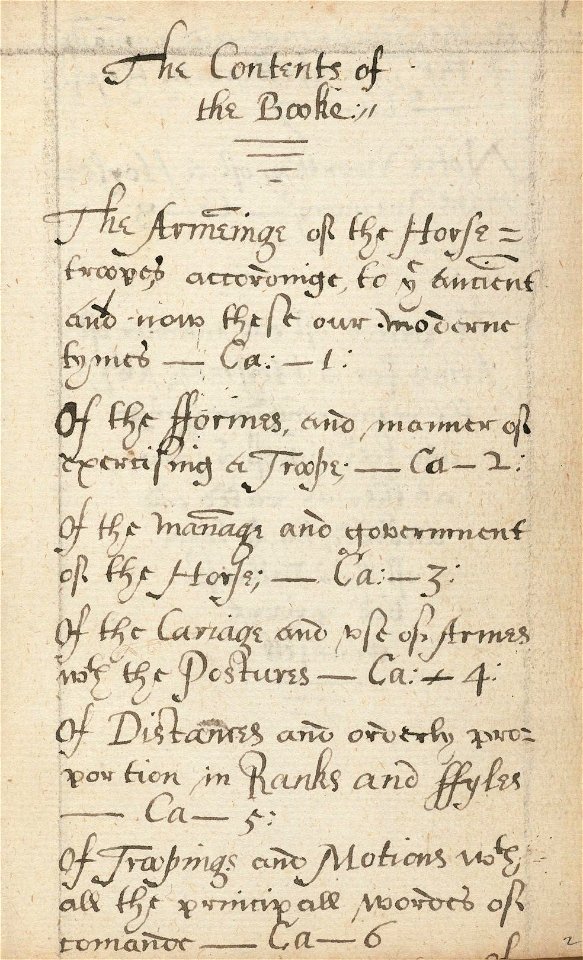 The Contents of
the Booke://
The Armeinge of the Horse=
troopes accordinge, to yͤ Ancient
and now these our moderne
tymes — Ca: — 1:
Of the fformes, and manner of
exercising a Troope; — Ca — 2:
Of the mannage and government
of the Horse; — Ca: — 3:
Of the Cariage and vse of Armes
wᵗʰ the Postures — Ca: — 4:
Of Distances and orderly pro=
portion in Ranks and ffyles
— Ca — 5:
Of Troopings and Motions wᵗʰ
all the principall wordes of
comande — Ca — 6
of
2